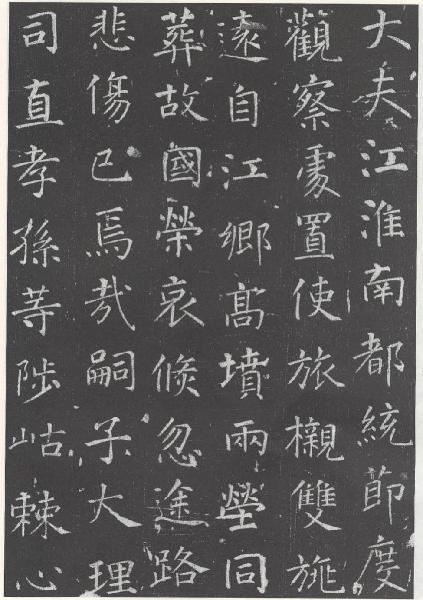 大夫江淮南都統節度
觀察處置使旅櫬雙旐
遠自江鄉髙墳兩塋同
葬故國榮哀倐忽途路
悲傷已焉㢤嗣子大理
司直孝孫䓁陟岵棘心